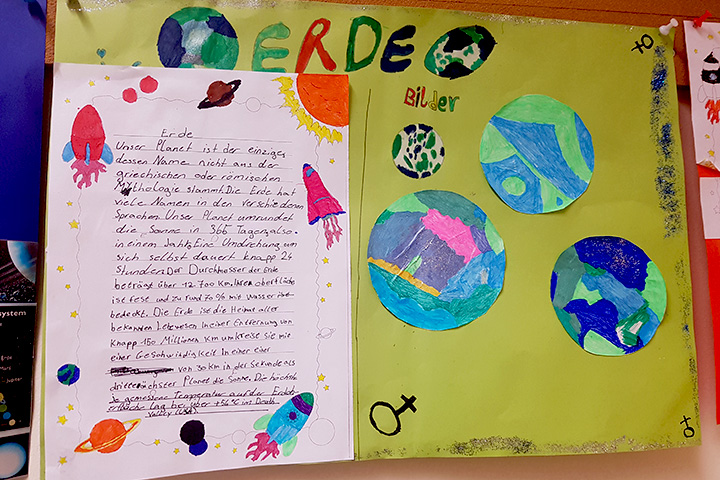 ERDE
Bilder
Erde
Unser Planet ist der einziges
dessen Name nicht aus der
griechischen oder römischen
Mythologie stammt. Die Erde hat
viele Namen in den verschiedenen
Sprachen. Unser Planet umrundet
die Sonne in 365 Tagen, also
in einem Jahr. Eine Umdrehung um
sich selbst dauert knapp 24
Stunden. Der Durchmesser der Erde
beträgt über 12 700 km. Ihre oberfläche
ist fest und zu rund 70 % mit Wasser
bedeckt. Die Erde ist die Heimat aller
bekannten Lebewesen. In einer Entfernung von
knapp 150 Millionen km umkreise sie mit
einer Geschwindigkeit in einer einer
von 30 km in der Sekunde als
nächster Planet die Sonne. Die höchste
je gemessene Temperatur auf der
lag bei über +56°C im Death
Valley (USA)
ystem